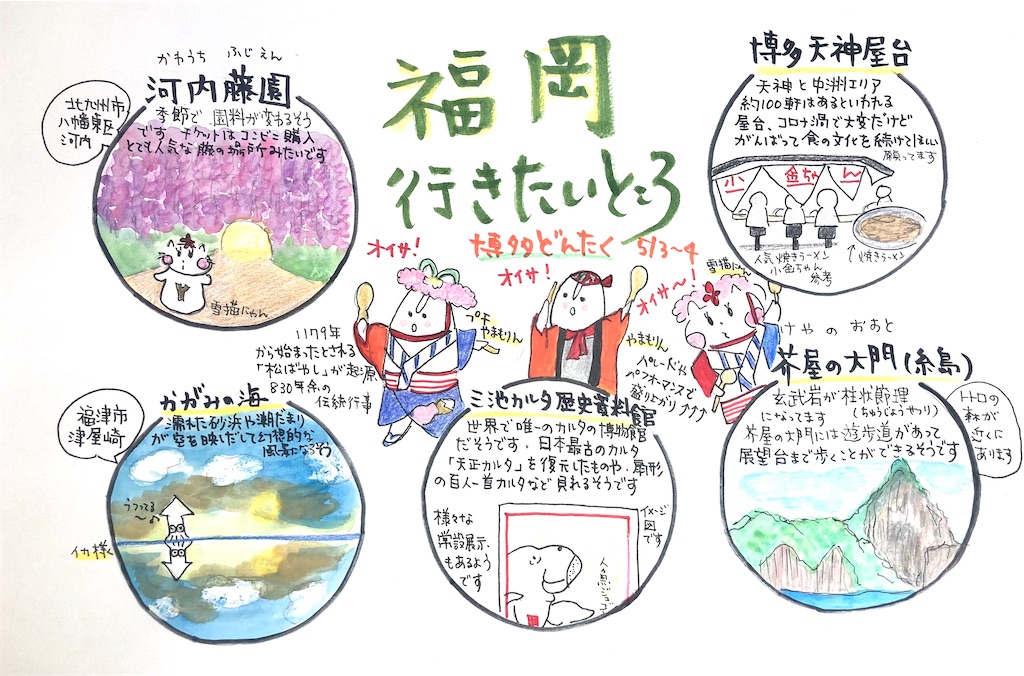 福岡
行きたいところ
かわうち ふじえん
河内藤園
北九州市
八幡東区
河内
季節で 園料が変わるそう
です。チケットはコンビニ購入
とても人気な藤の場所みたいです
雪猫にゃん
博多天神屋台
天神と中洲エリア
約100軒はあるといわれる
屋台、コロナ渦で大変だけど
がんばって食の文化を続けてほしい
願ってます
小金ちゃん
人気焼きラーメン
小金ちゃん
参考
↑焼きラーメン
博多どんたく 5/3~4
オイサ!
オイサ!
オイサ〜!
やまもりん
やまもりん
雪猫にゃん
1179年
から始まったとされる
「松ばやし」が起源
830年余の
伝統行事
パレードや
パフォマンスで
盛り上がり
かがみの海
福津市
津屋崎
濡れた砂浜や潮だまり
が空を映しだして幻想的な
風景になるそう
うつってる
〜♪
イカ様
三池カルタ歴史資料館
世界で唯一のカルタの博物館
だそうです。日本最古のカルタ
「天正カルタ」を復元したものや、扇形
の百人一首カルタなど見れるそうです
様々な
常設展示
もあるよう
です
イメージ
図です
人魚ジュゴン
けやのおおと
芥屋の大門(糸島)
玄武岩が柱状節理
(ちゅうじょうせつり)
になってます
芥屋の大門には遊歩道があって
展望台まで歩くことができるそうです
トトロの
森が
近くに
あります